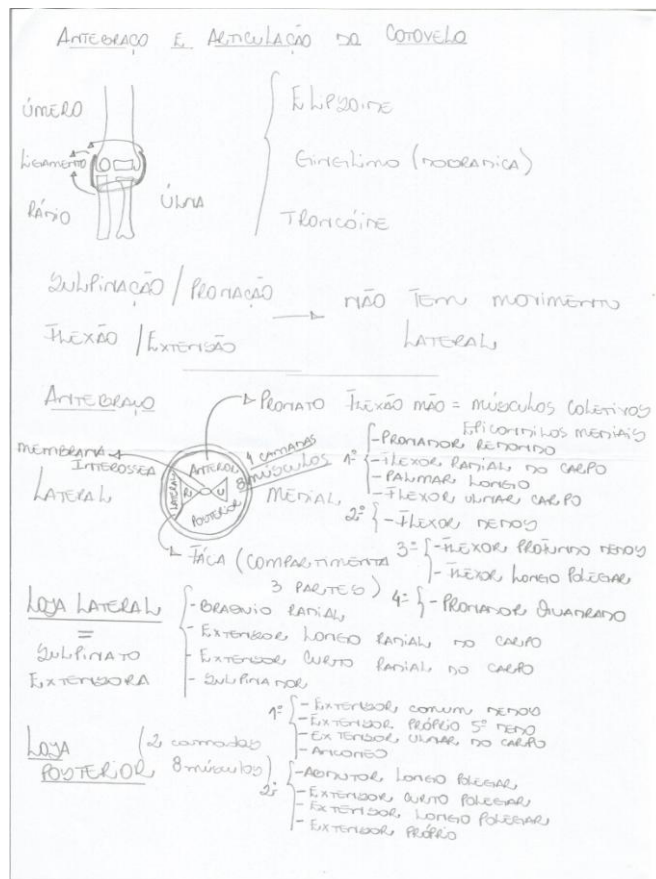 ANTEBRAÇO E ARTICULAÇÃO DO COTOVELO
ÚMERO
LIGAMENTO
RÁDIO
ÚLNA
ELPSOIDE
GINGILIMO (DOBRADICA)
TRONCÓIDE
SULPINAÇÃO / PRONAÇÃO
FLEXÃO / EXTENSÃO
NÃO TEM MOVIMENTO
LATERAL
ANTEBRAÇO
PRONATO FLEXÃO MÃO = MÚSCULOS COLETIVOS
EPICONDILOS MEDIAIS
MEMBRANA
INTEROSSEA
LATERAL
ANTERIOR
LATERAL
R U
POSTERIOR
4 CAMADAS
8 MÚSCULOS
MEDIAL
FÁCA (COMPARTIMENTA
3 PARTES)
1º - PRONADOR REDONDO
- FLEXOR RADIAL DO CARPO
- PALMAR LONGO
- FLEXOR ULNAR CARPO
2º - FLEXOR DEDOS
3º - FLEXOR PROFUNDO DEDOS
- FLEXOR LONGO POLEGAR
4º - PRONADOR QUADRADO
LOJA LATERAL
=
SULPINATO
EXTENSORA
- BRAQUIO RADIAL
- EXTENSOR LONGO RADIAL DO CARPO
- EXTENSOR CURTO RADIAL DO CARPO
- SULPINADOR
LOJA
POSTERIOR
(2 camadas
8 músculos)
1º - EXTENSOR COMUM DEDOS
- EXTENSOR PRÓPRIO 5º DEDO
- EXTENSOR ULNAR DO CARPO
- ANCONEO
2º - ABDUTOR LONGO POLEGAR
- EXTENSOR CURTO POLEGAR
- EXTENSOR LONGO POLEGAR
- EXTENSOR PRÓPRIO